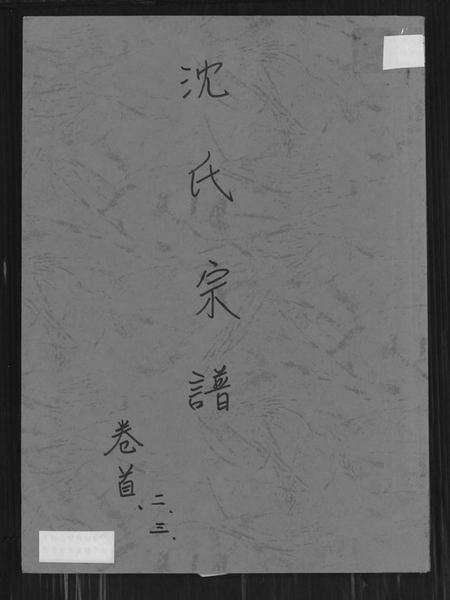 沈氏宗譜
卷首、二、三、